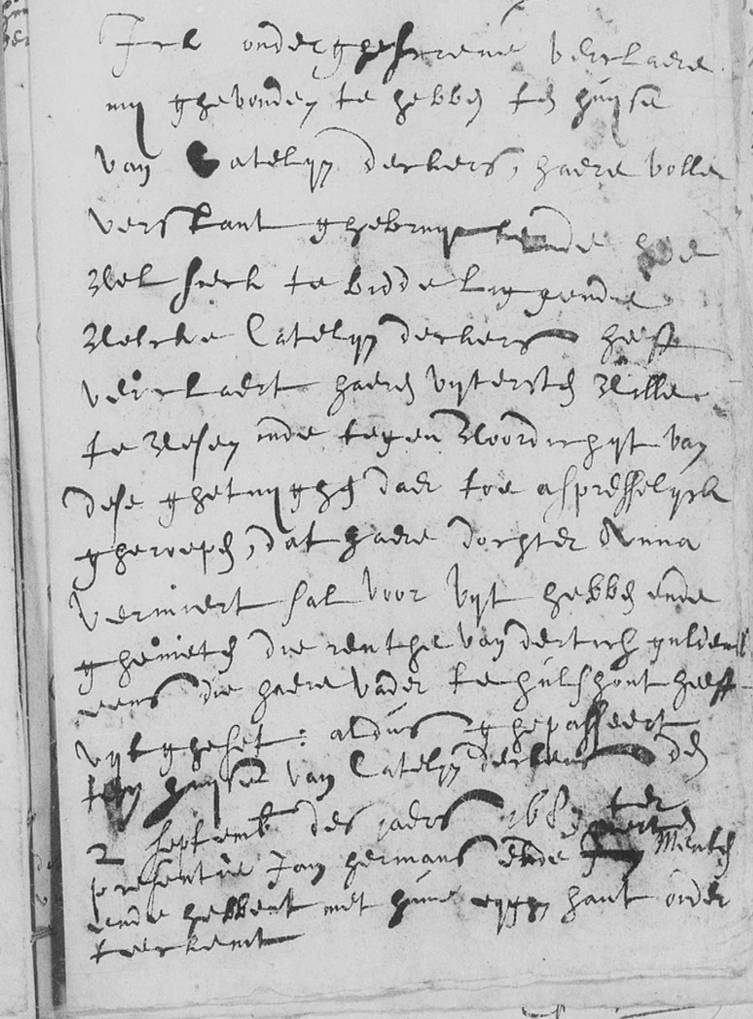 Ick onderghescrevene verclaere
my ghevonden te hebben ten huyse
van Catelyn derkers, haere volle
verstant ghebruyckende hoe
wel sieck te bedde liggende
welcke Catelyn derkers heeft
verclaert haeren uytersten wille
te wesen inde tegenwoordicheyt van
dese ghetuyghen daer toe expresselyck
gheroepen, dat haere dochter Anna
sal voor uyt hebben ende
ghenieten die renthe van dertich guldens
eens die haere vader te hulshout heeft
uytgheset: aldus ghepasseert
ten huyse van Catelyn derkers den
2 septemb des jaers 168 ter
presentie Jan hermans ende Jan
ende hebbent met hun eyghen hant onder
teekent